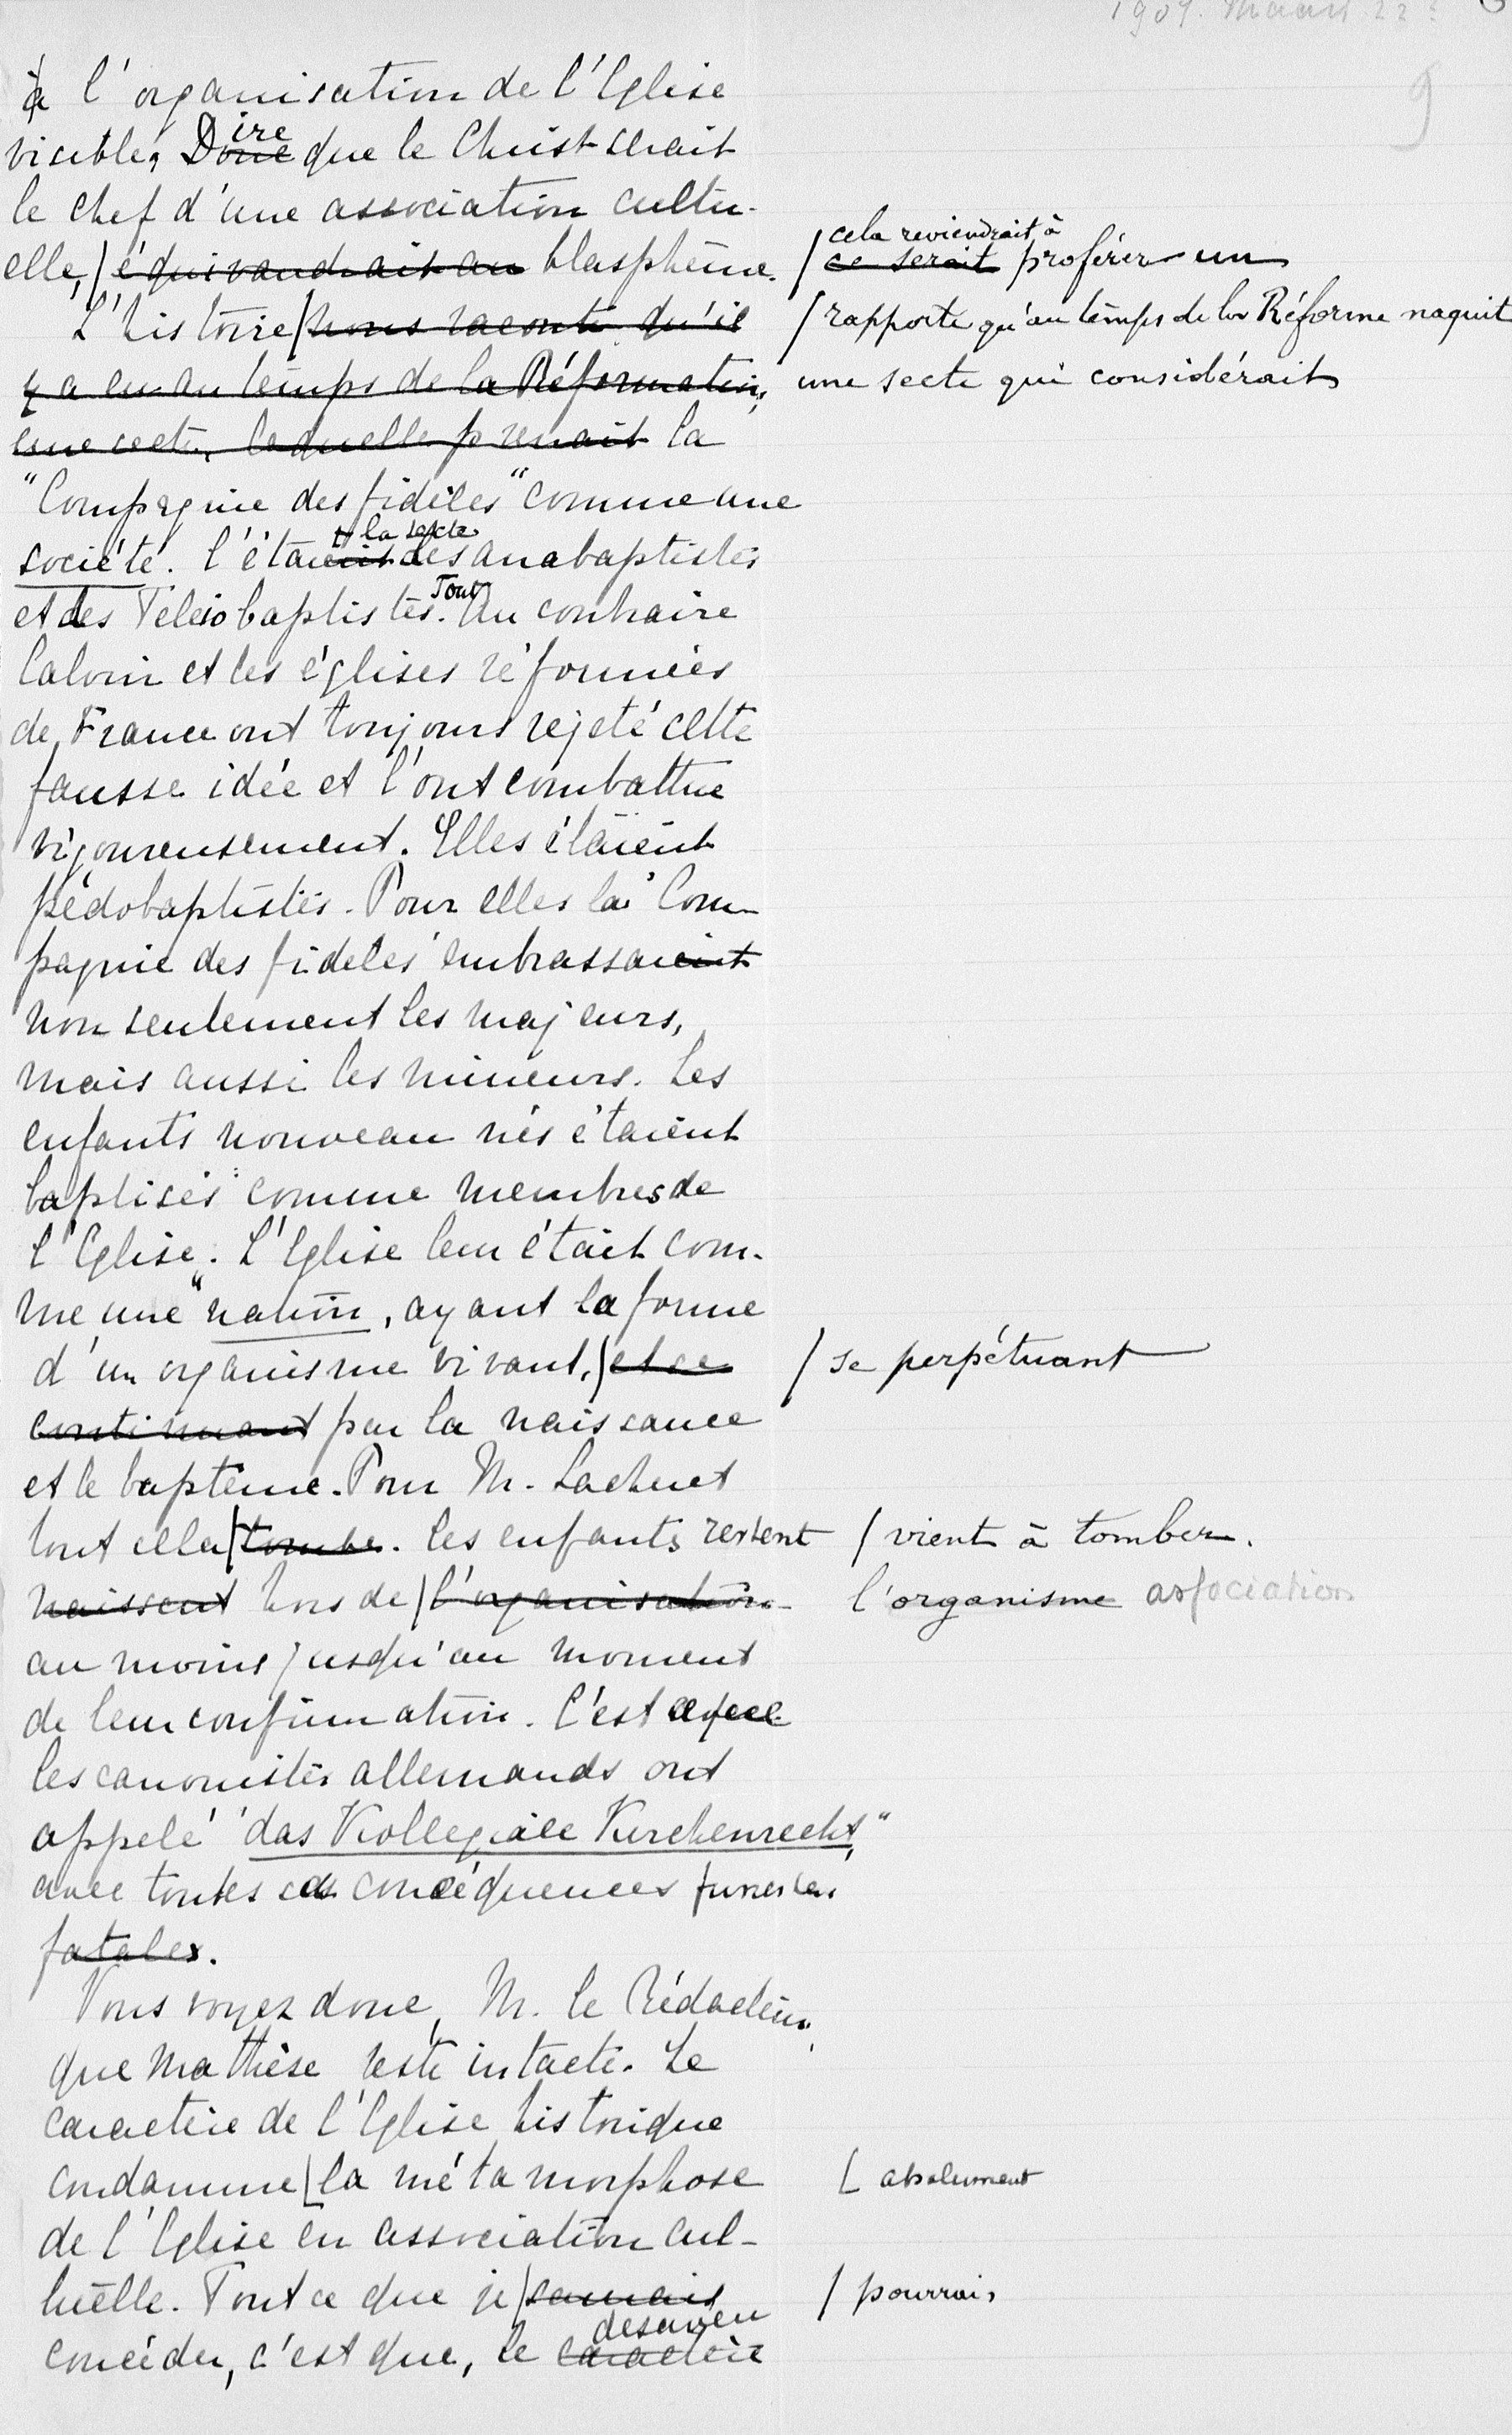 1907. Maart 22?
9
à l'organisation de l'Eglise
visible, Donc ire que le Christ serait
le chef d'une association cultu-
elle, / équivaudrait au blasphème. / ce serait cela reviendrait à proférer un
L'histoire / nous raconte qu'il / rapporte qu'au temps de la Réforme naquit
y a eu au temps de la Réformation, une secte qui considérait
une secte, laquelle prenait la
"Compagnie des fidèles" comme une
société. C'étaient t la secte des anabaptistes
et des Teleiobaptistes. Tout Au contraire
Calvin et les églises réformées
de France ont toujours rejeté cette
fausse idée et l'ont combattue
vigoureusement. Elles étaient
pédobaptistes. Pour elles la "Com-
pagnie des fidèles" embrassaient
non seulement les majeurs,
mais aussi les mineurs. Les
enfants nouveau nés étaient
baptisés comme membres de
l'Eglise. L'Eglise leur était com-
me une "nation, ayant la forme
d'un organisme vivant, / et se / se perpétuant
continuant par la naissance
et le baptême. Pour M. Lacheret
tout cela / tombe. Les enfants restent / vient à tomber.
naissent hors de / l'organisation l'organisme association
au moins jusqu'au moment
de leur confirmation. C'est ce que
les canonistes allemands ont
appelé "das Kollegiale Kirchenrecht,"
avec toutes ses conséquences funestes
fatales.
Vous voyez donc, M. le Rédacteur,
que ma thèse reste intacte. Le
caractère de l'Eglise historique
condamne [ la métamorphose [ absolument
de l'Eglise en association cul-
tuelle. Tout ce que je / saurais / pourrais
concéder, c'est que, le caractère desaveu